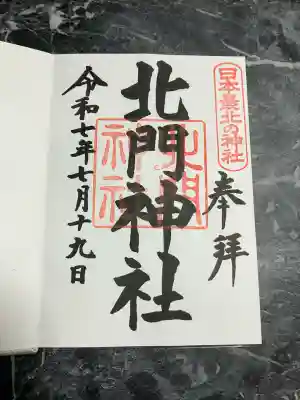 日本最北の神社
奉拝
北門神社
北門神社
令和七年七月十九日